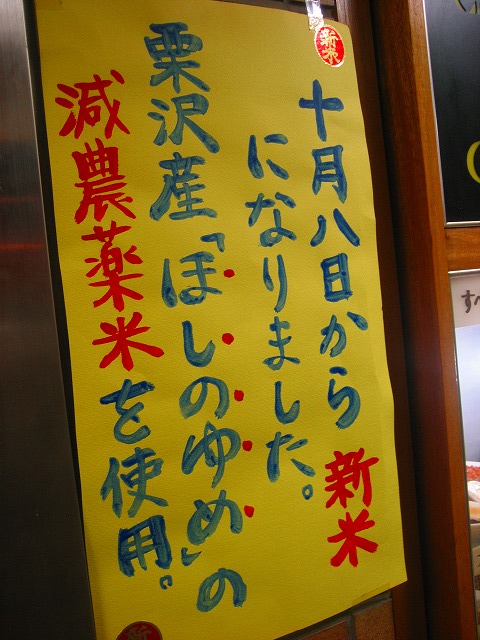 新米
十月八日から新米
になりました。
栗沢産「ほしのゆめ」の
減農薬米を使用。
新
す